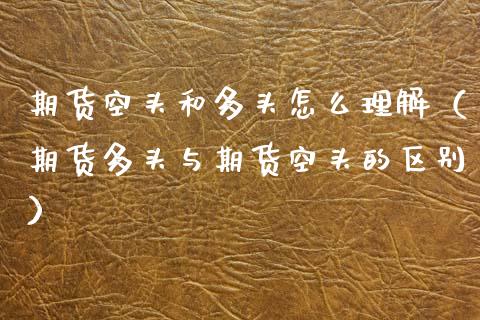 期货空头和多头怎么理解（
期货多头与期货空头的区别
）